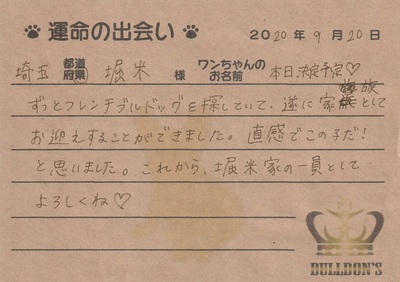 運命の出会い
2020年 9月 20日
埼玉 都道府県 堀米 様 ワンちゃんのお名前 本日決定予定♡
ずっとフレンチブルドッグを探していて、遂に家族として
お迎えすることができました。直感でこの子だ!
と思いました。これから、堀米家の一員として
よろしくね♡
BULLDON'S